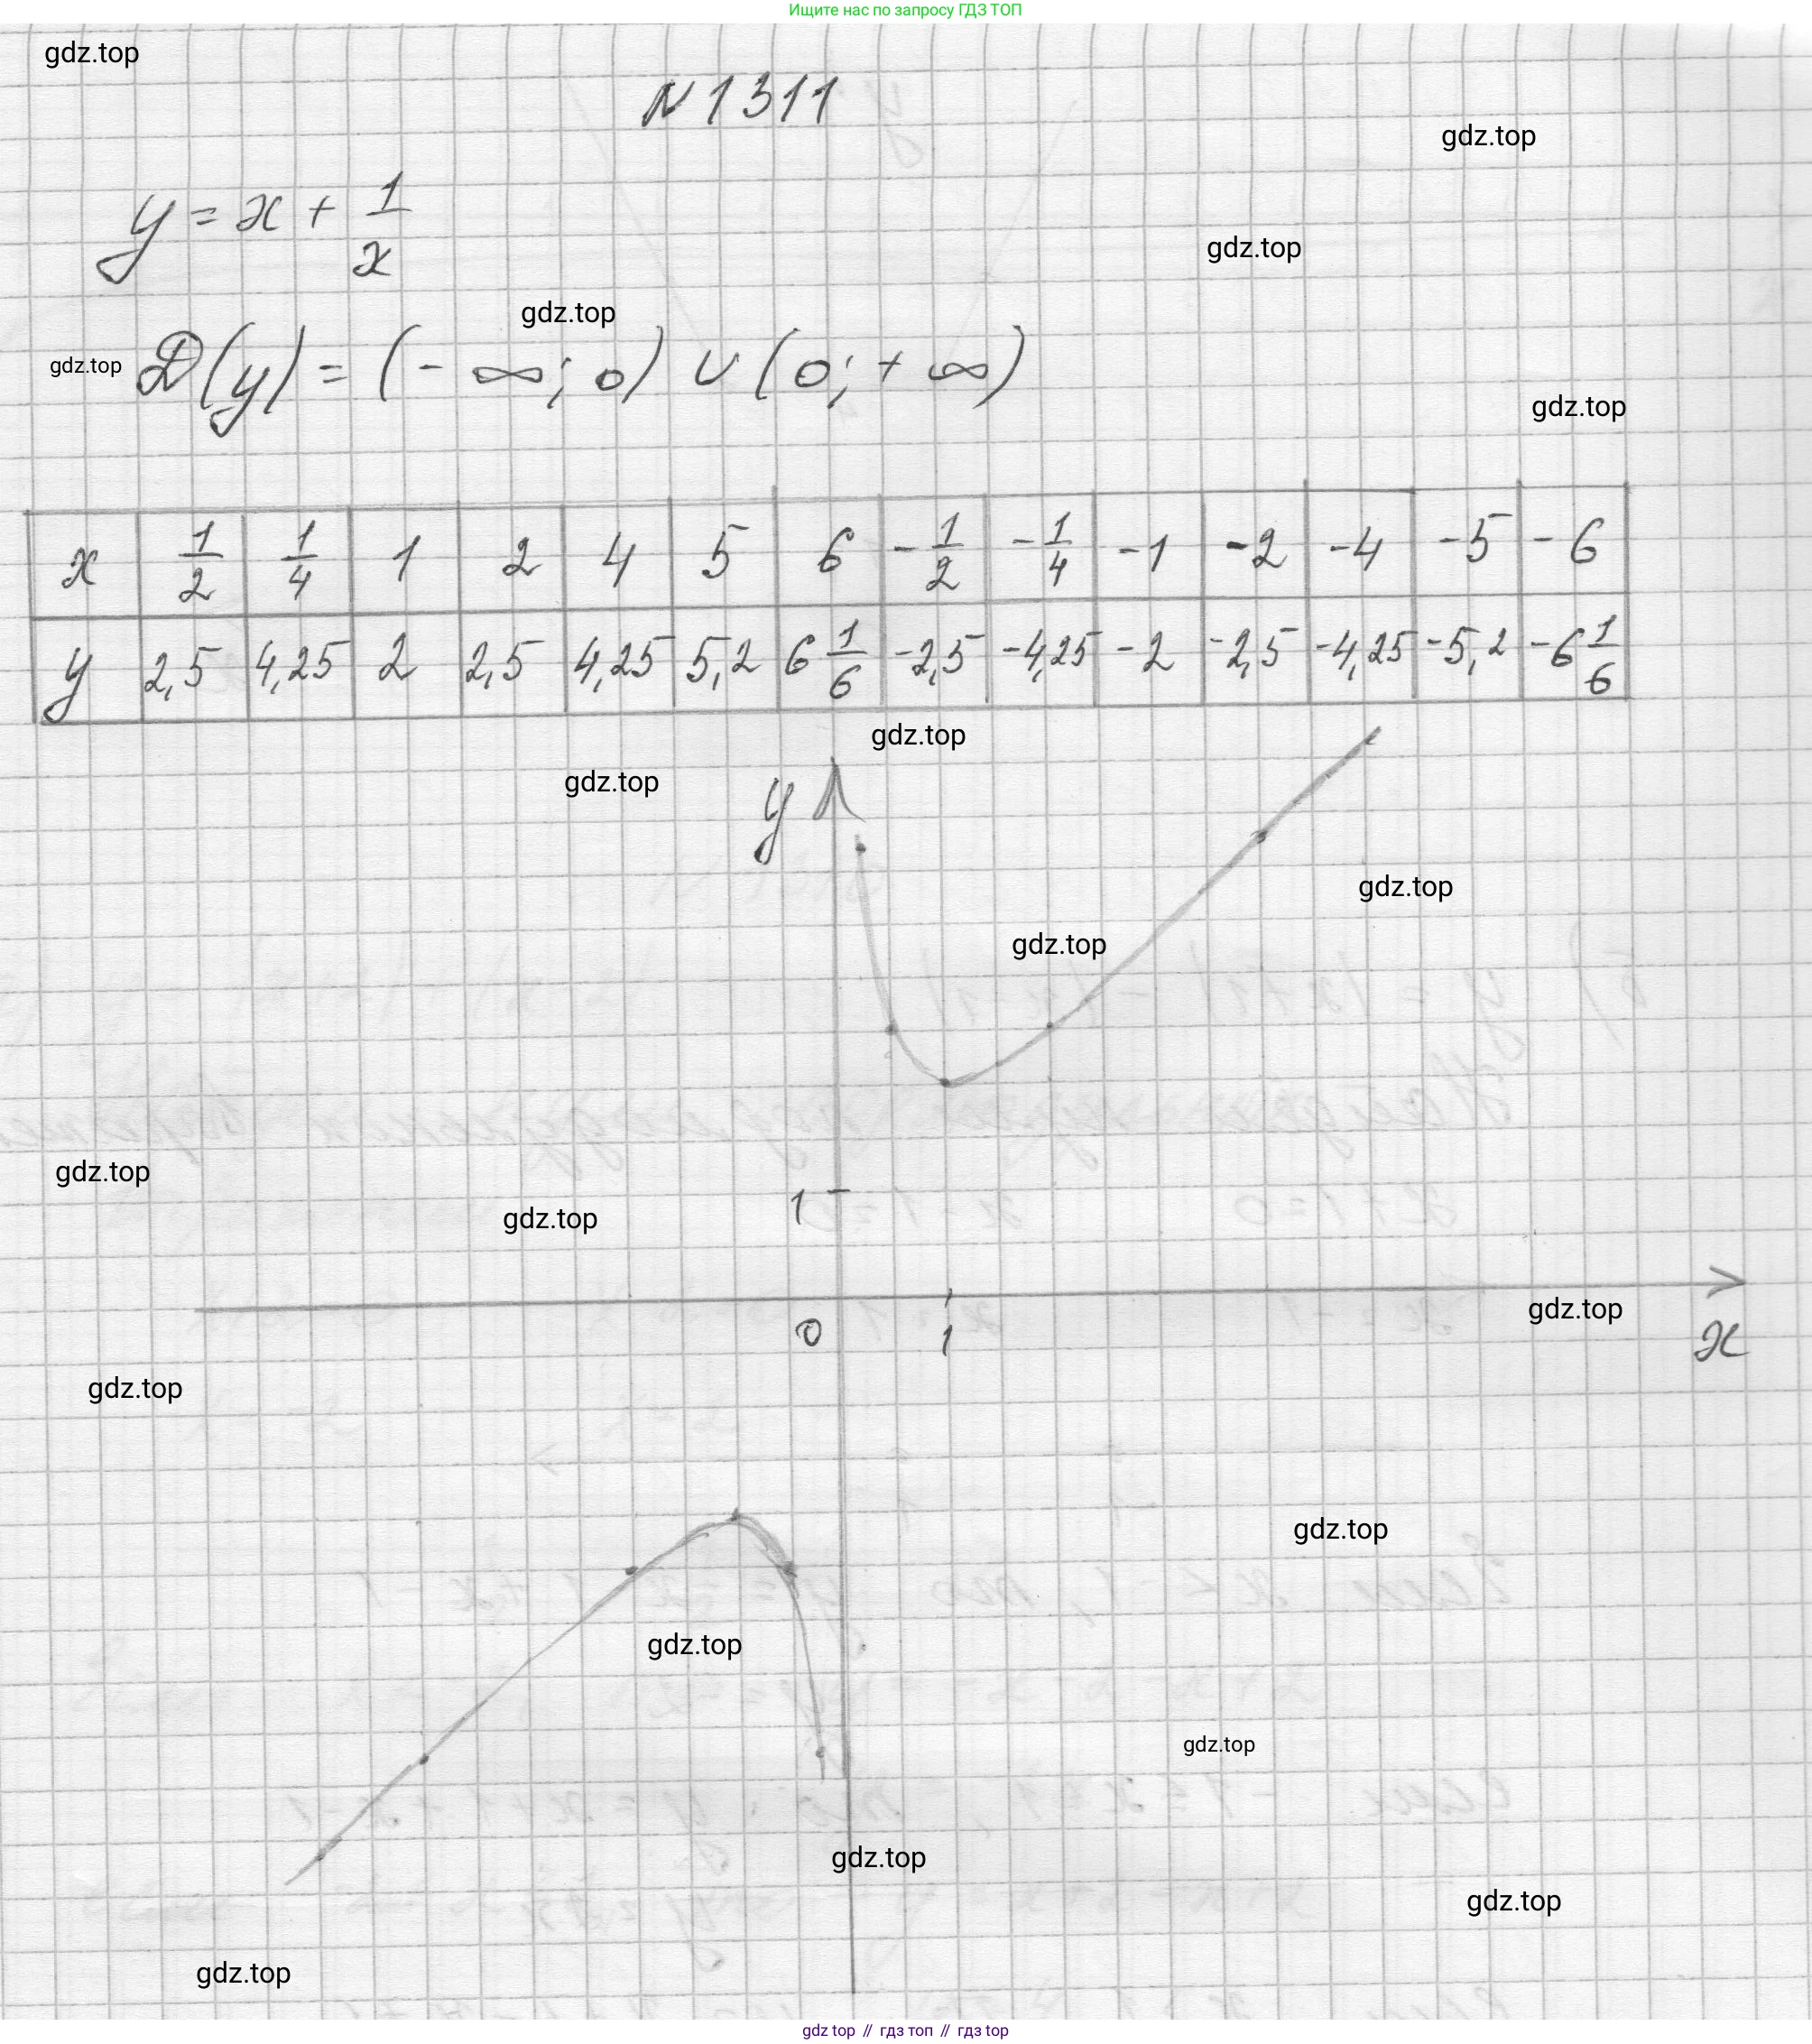 Ищите нас по запросу ГДЗ ТОП
gdz.top
N 1311
gdz.top
y = x + 1/x
gdz.top
gdz.top
gdz.top
D(y) = (- ∞; 0) ∪ (0; + ∞)
gdz.top
x 1/2 1/4 1 2 4 5 6 -1/2 -1/4 -1 -2 -4 -5 -6
y 2,5 4,25 2 2,5 4,25 5,2 6 1/6 -2,5 -4,25 -2 -2,5 -4,25 -5,2 -6 1/6
gdz.top
gdz.top
y
gdz.top
gdz.top
gdz.top
1
gdz.top
gdz.top
0 1 x
gdz.top
gdz.top
gdz.top
gdz.top
gdz.top
gdz.top
gdz.top
gdz top // гдз топ // гдз top